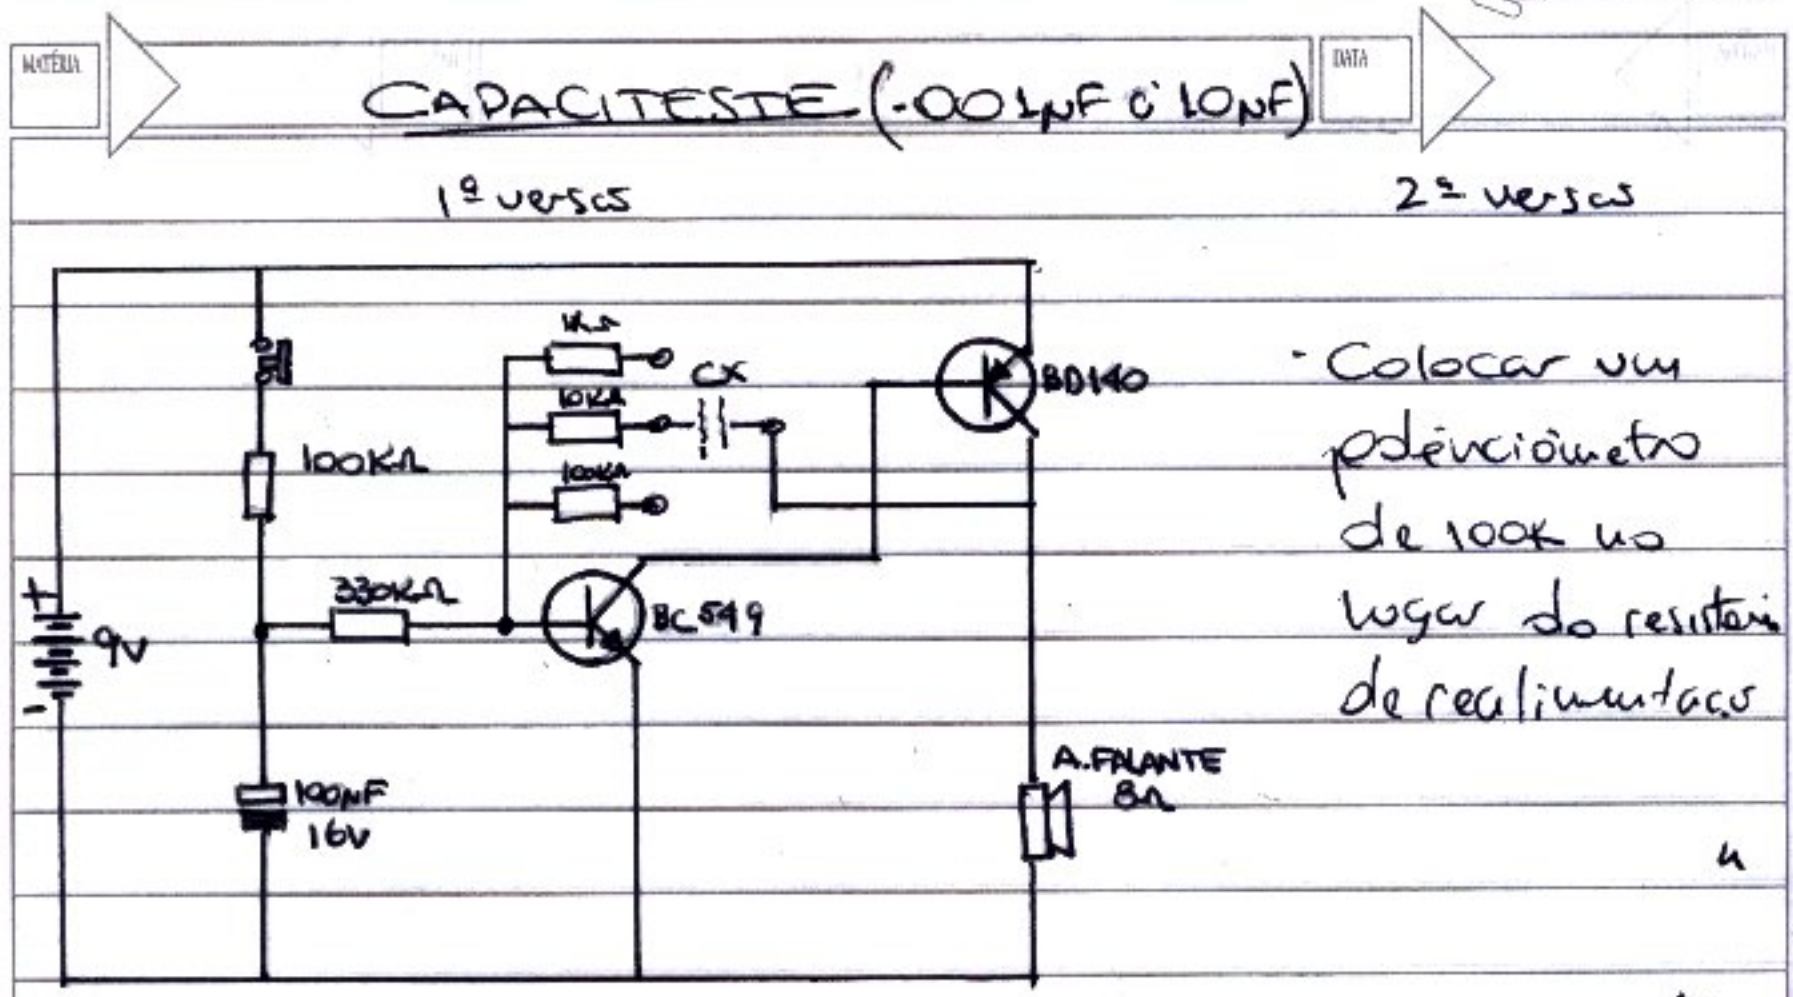 MATÉRIA
CAPACITESTE (.001µF à 10µF)
DATA
1ª versão
2ª versão
1KΩ
CX
10KΩ
BD140
100KΩ
100KΩ
330KΩ
BC549
+
9V
-
100µF
16V
A.FALANTE
8Ω
· Colocar um
potênciômetro
de 100K no
lugar do
de realimentação